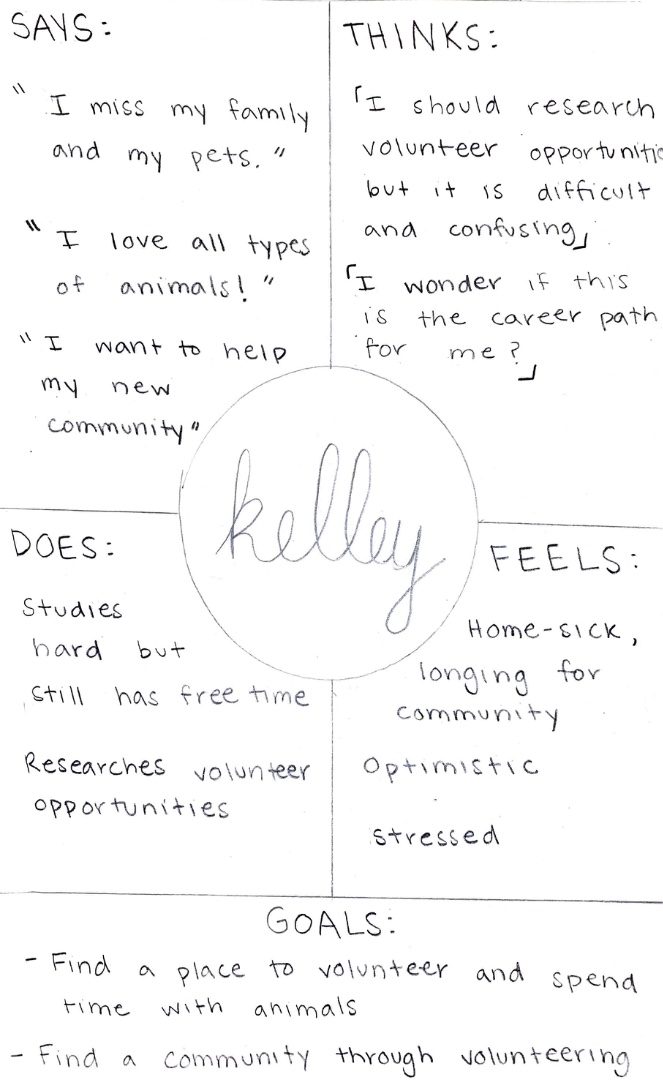 SAYS:
" I miss my family
and my pets. "
" I love all types
of animals! "
" I want to help
my new
community"
THINKS:
「I should research
volunteer opportunitie
but it is difficult
and confusing」
「I wonder if this
is the career path
for me?
」
kelley
DOES:
Studies
hard but
still has free time
Researches volunteer
opportunities
FEELS:
Home-sick,
longing for
community
Optimistic
stressed
GOALS:
- Find a place to volunteer and spend
time with animals
- Find a community through volunteering